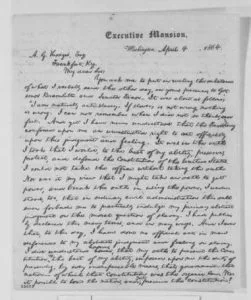 Executive Mansion,
Washington, April 4, 1864.
A. G. Hodges, Esq
Frankfort, Ky.
My dear Sir:
You ask me to put in writing the substance
of what I verbally said the other day, in your presence, to Gov.
Bramlette and Senator Dixon. It was about as follows:
"I am naturally anti-slavery. If slavery is not wrong, nothing
is wrong. I can not remember when I did not so think, and
feel. And yet I have never understood that the Presidency
conferred upon me an unrestricted right to act officially
upon this judgment and feeling. It was in the oath
I took that I would, to the best of my ability, preserve,
protect, and defend the Constitution of the United States.
I could not take the office without taking the oath.
Nor was it my view that I might take an oath to get
power, and break the oath in using the power. I under-
stood, too, that in ordinary civil administration this oath
even forbade me to practically indulge my primary abstract
judgment on the moral question of slavery. I had publicly
declared this many times, and in many ways. And I aver
that, to this day, I have done no official act in mere
deference to my abstract judgment and feeling on slavery.
I did understand however, that my oath to preserve the con-
stitution to the best of my ability, imposed upon me the duty of
preserving, by every indispensable means, that government, that
nation, of which that Constitution was the organic law. Was it